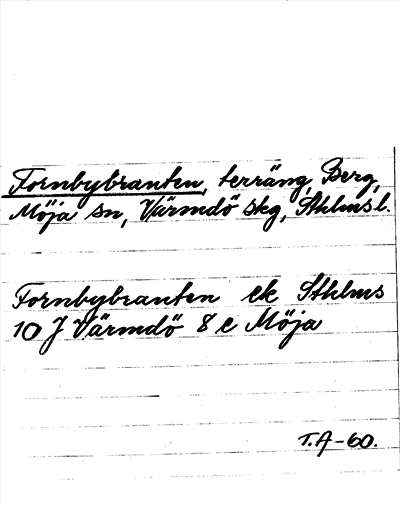 Fornbybranten, terräng, Berg,
Möja sn, Värmdö skg, Sthlms l.
Fornbybranten ek Sthlms
10 J Värmdö 8 e Möja
T.A-60.